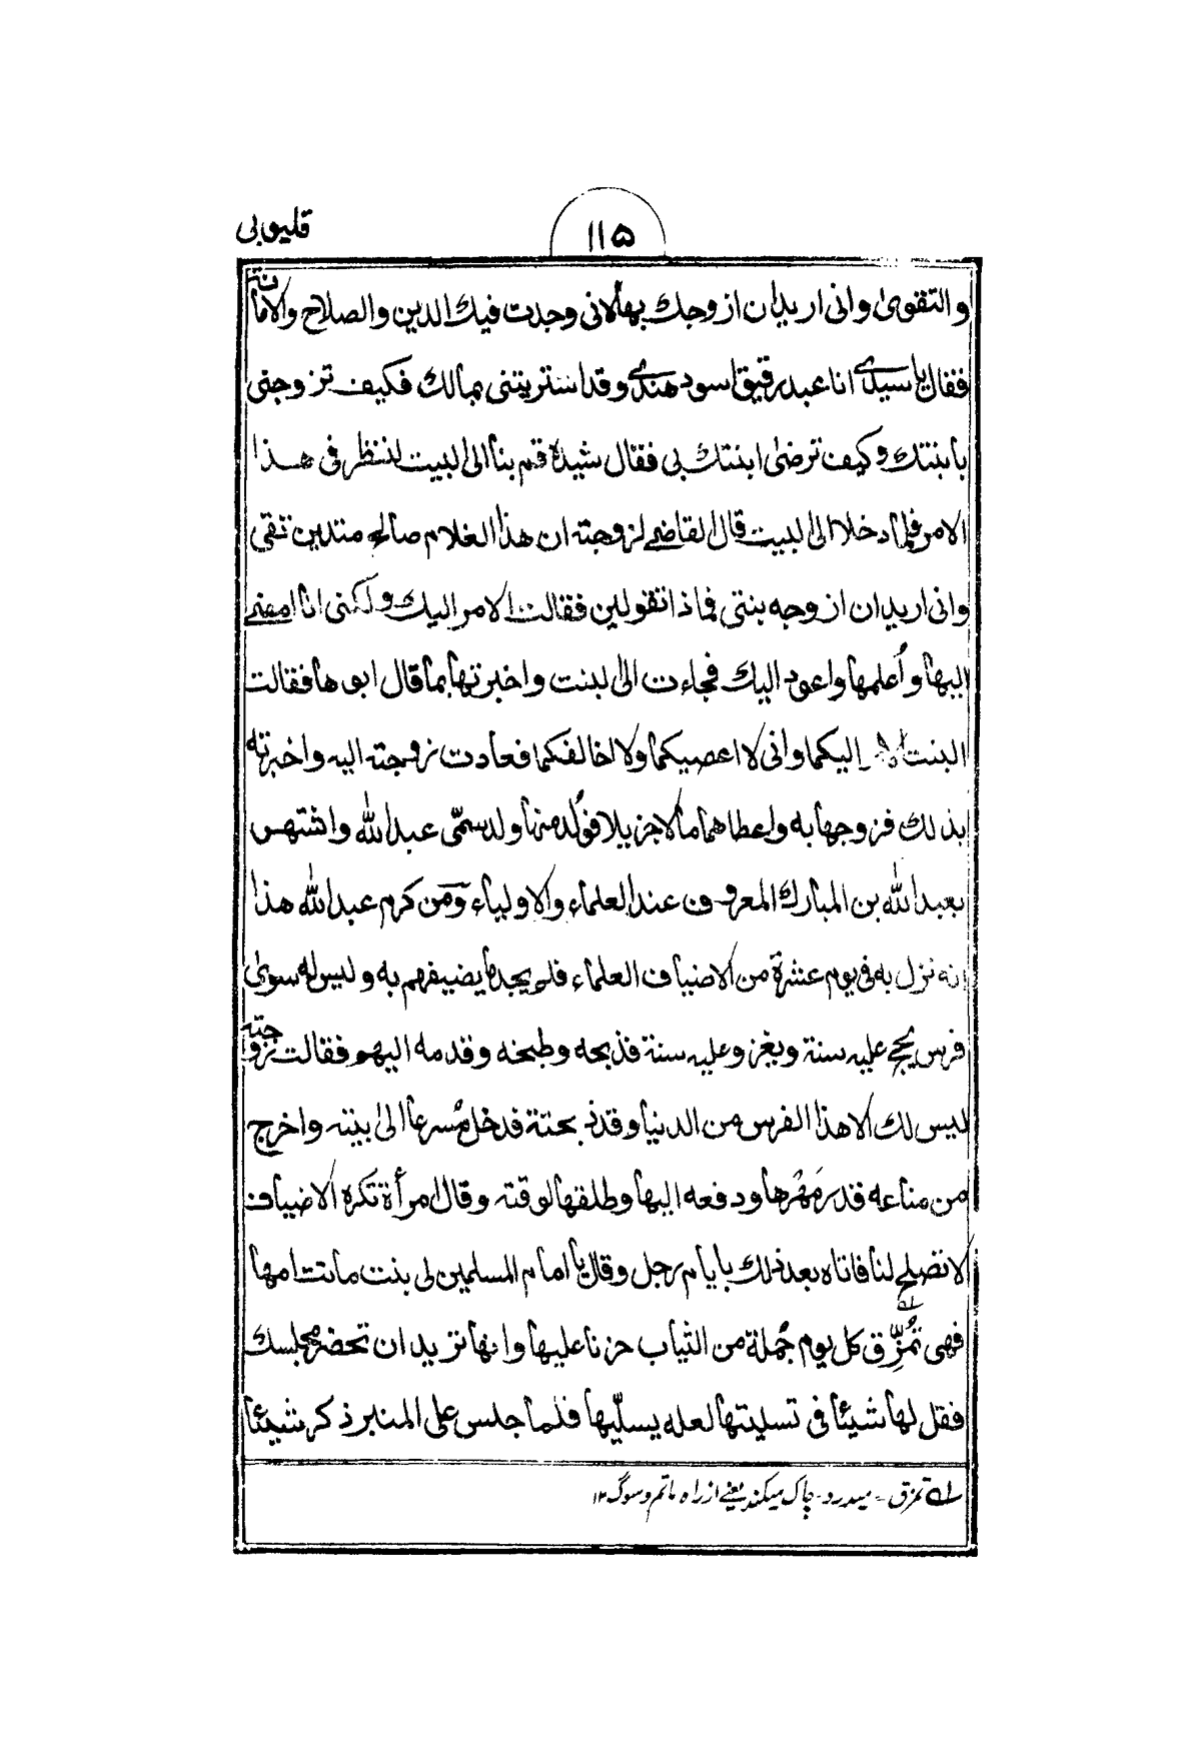 قليوبى
۱۱۵
والتقوىٰ وانى اريد ان ازوجك بها لانى وجدت فيك الدين والصلاح والامانة
فقال يا سيدى انا عبد رقيق اسود هندى وقد اشتريتنى بمالك فكيف تزوجنى
بابنتك وكيف ترضىٰ ابنتك بى فقال سيدهٗ قم بنا الى البيت لننظر فى هذا
الامر فلما دخلا الى البيت قال القاضى لزوجته ان هذا الغلام صالح متدين تقى
وانى اريد ان ازوجه بنتى فماذا تقولين فقالت الامر اليك ولكنى انا امضى
اليها وأُعلمها واعود اليك فجاءت الى البنت واخبرتها بما قال ابوها فقالت
البنت اليكما وانى لا اعصيكما ولا اخالفكما فعادت زوجته اليه واخبرته
بذلك فزوجها به واعطاهما مالا جزيلا فوُلد منها ولد سمّى عبد الله واشتهر
بعبد الله بن المبارك المعروف عند العلماء والاولياء ومن كرم عبد الله هذا
انه نزل به فى يوم عشرة من الاضياف العلماء فلم يجد ما يضيفهم به وليس له سوىٰ
فرس يحج عليه سنة ويغزو عليه سنة فذبحه وطبخه وقدمه اليهم فقالت زوجته
ليس لك الا هذا الفرس من الدنيا وقد ذبحته فدخل مُسرعا الىٰ بيته واخرج
من متاعه قدر مَهْرها ودفعه اليها وطلقها لوقته وقال امرأة تكره الاضياف
لا تصلح لنا فاتاه بعد ذلك بايام رجل وقال يا امام المسلمين لى بنت ماتت امها
فهى تُمَزِّق كل يوم جُملة من الثياب حزنا عليها وانها تريد ان تحضر مجلسك
فقل لها شيئا فى تسليتها لعله يسلّيها فلما جلس على المنبر ذكر شيئا
لـه تمزق ـ ميدرد ـ چاك ميكند يعنے از راه ماتم وسوگ ۱۲